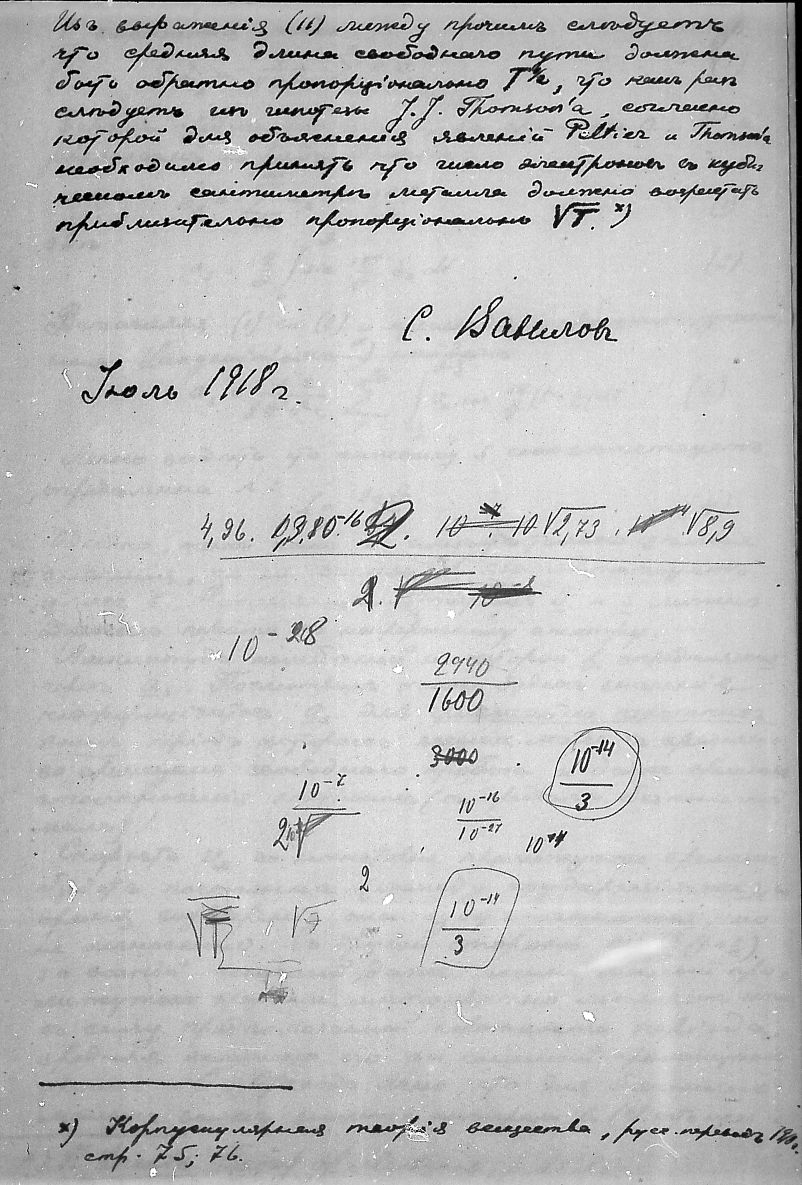 Изъ выраженія (16) между прочимъ слѣдуетъ
что средняя длина свободнаго пути должна
быть обратно пропорціональна T½, что какъ разъ
слѣдуетъ изъ гипотезы J. J. Thomson'a, согласно
которой для объясненія явленій Peltier и Thomson'a
необходимо принять что число электроновъ въ куби-
ческомъ сантиметрѣ металла должно возрастать
приблизительно пропорціонально √T. x)
С. Вавиловъ
Іюль 1918 г.
4,96. 10 √2,73 . √8,9
2
10⁻²⁸
2440
1600
3000
10⁻¹⁴
3
10⁻⁷
2
10⁻¹⁶
10⁻²⁷
2
10⁻¹⁴
3
x) Корпускулярная теорія вещества, русс. переводъ
стр. 75; 76.